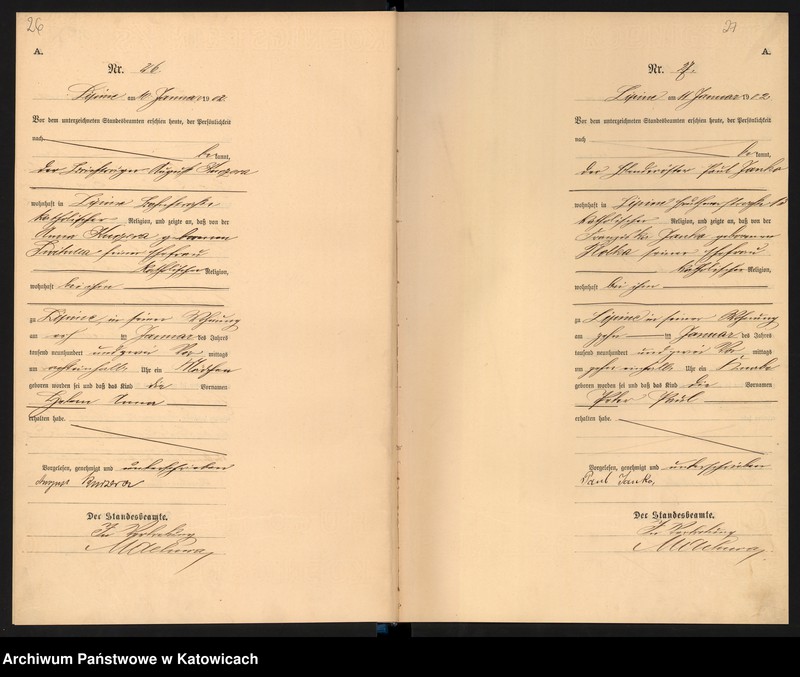 26
A.
Nr. 26
Lipine am 11 Januar 1902.
Vor dem unterzeichneten Standesbeamten erschien heute, der Persönlichkeit
nach
be kannt,
der August Kurzera
wohnhaft in Lipine
katholischer Religion, und zeigte an, daß von der
Anna Kurzera geborenen
seiner Ehefrau
katholischer Religion,
wohnhaft bei ihm
zu Lipine in seiner Wohnung
am ten Januar des Jahres
tausend neunhundert und zwei Vor mittags
um Uhr ein Mädchen
geboren worden sei und daß das Kind die Vornamen
Anna
erhalten habe.
Vorgelesen, genehmigt und unterschrieben
August Kurzera
Der Standesbeamte.
In Vertretung
27
A.
Nr. 27.
Lipine am 11 Januar 1902.
Vor dem unterzeichneten Standesbeamten erschien heute, der Persönlichkeit
nach
be kannt,
der Paul Janko
wohnhaft in Lipine
katholischer Religion, und zeigte an, daß von der
Franziska Janko geborenen
seiner Ehefrau
katholischer Religion,
wohnhaft bei ihm
zu Lipine in seiner Wohnung
am zehn ten Januar des Jahres
tausend neunhundert und zwei Vor mittags
um Uhr ein Knabe
geboren worden sei und daß das Kind die Vornamen
Peter Paul
erhalten habe.
Vorgelesen, genehmigt und unterschrieben
Paul Janko,
Der Standesbeamte.
In Vertretung
Archiwum Państwowe w Katowicach